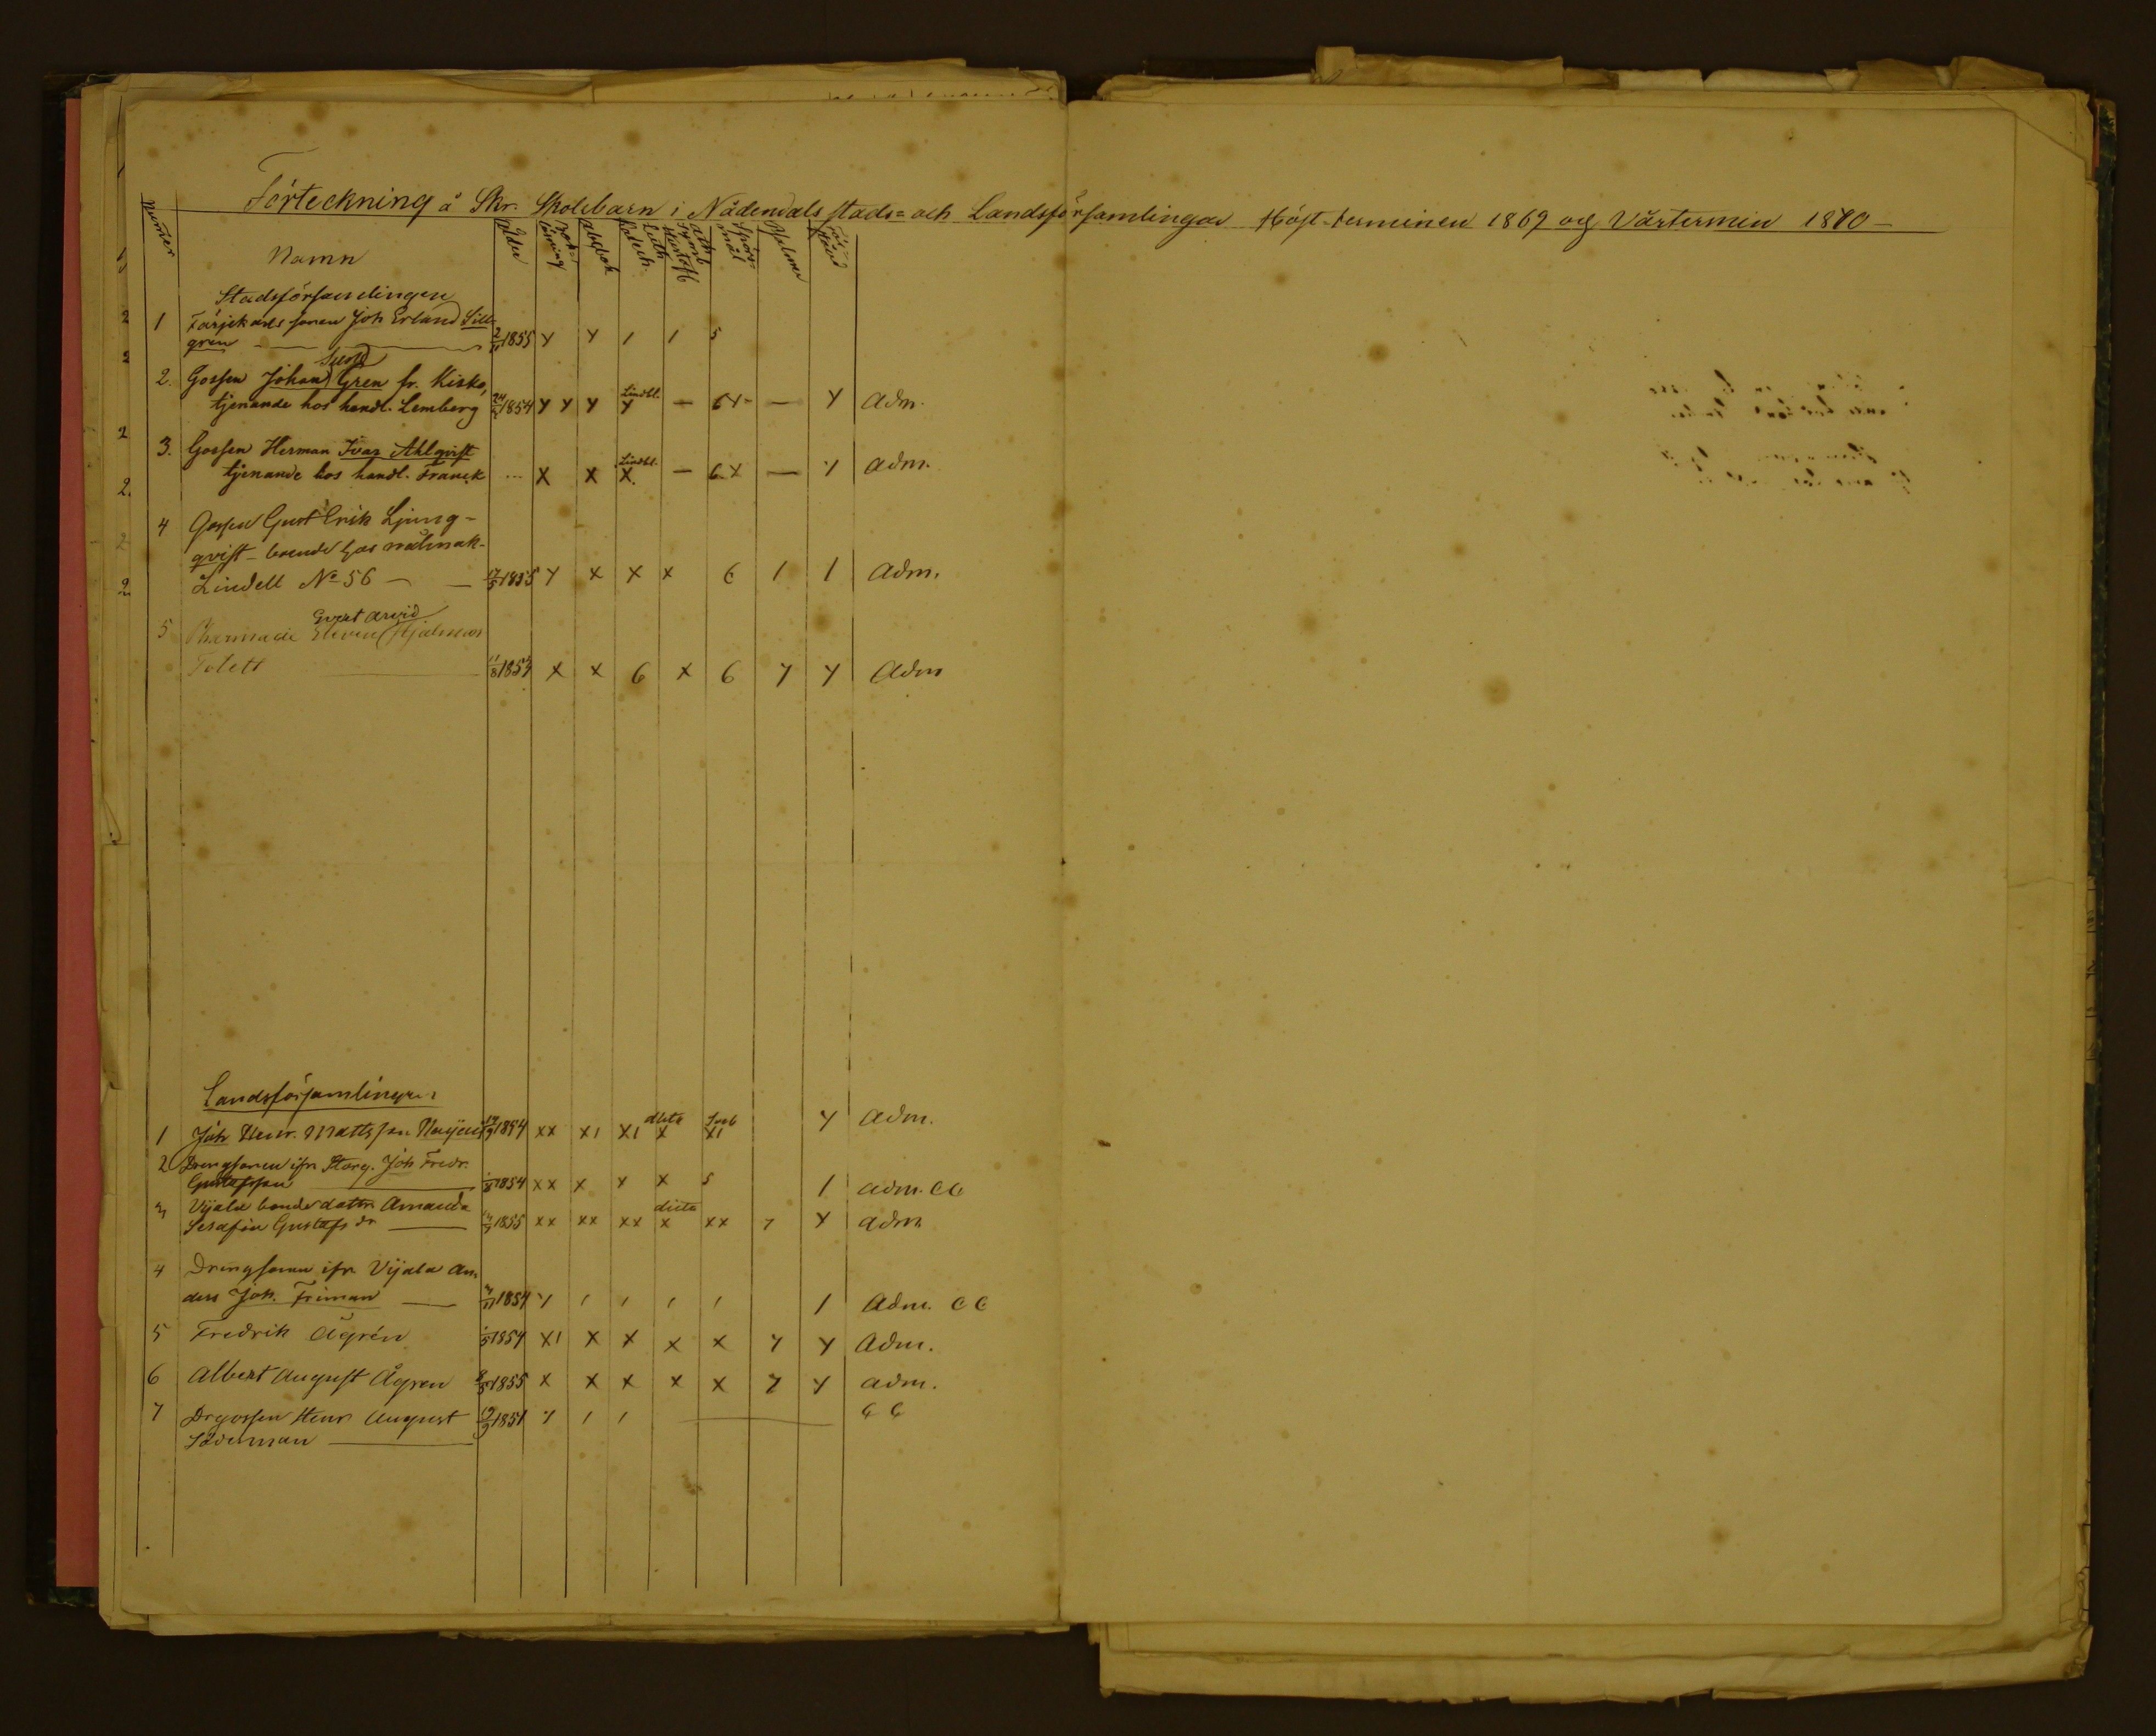 Förteckning å Skr. Skolebarn i Nådendals stads= och Landsförsamlingar Höst-terminen 1869 og Vårtermin 1870 —
Numer Namn Ålder
Abcbok Catech. Spörsmål Psalmer
Stadsförsamlingen
1 Färjekarls sonen Joh Erland Sill-
gren — 2/11 1855 Y Y 1 1 5
2. Gossen Johan Gren fr. Kisko,
tjenande hos handl. Lemberg 1854 Y Y Y Lindbl. Y — 6Y- — Y Adm.
3. Gossen Herman Ivar Ahlqvist
tjenande hos handl. Franck ... X X Lindbl. X. — 6X — Y Adm.
4 Gossen Gust Erik Ljung-
qvist — boende hos
Lindell No 56 — — 17/5 1855 Y X X X 6 1 1 Adm.
Evert Arvid
5 Pharmacie Eleven Hjalmar
11/8 1853 X X 6 X 6 Y Y Adm
Landsförsamlingen
1 Joh Henr. Mattsson 1854 XX X1 X1 X X1 Y Adm.
2 Drengsonen ifr Storg. Joh Fredr.
Gustafsson 1854 XX X X X 5 1 Adm. CC
3 Vijala bonde dottr Amanda
Serafin Gustafs dr — 1855 XX XX XX X XX Y Y Adm
4 Drengsonen ifr Vijala An-
ders Joh. Friman — 1854 Y 1 1 1 1 1 Adm. CC
5 Fredrik Ågrén 1854 X1 X X X X Y Y Adm.
6 Albert August Ågren 1855 X X X X X Y Y Adm.
7 Drgossen Henr August 19/9 1851 Y 1 1 — CC
Söderman —